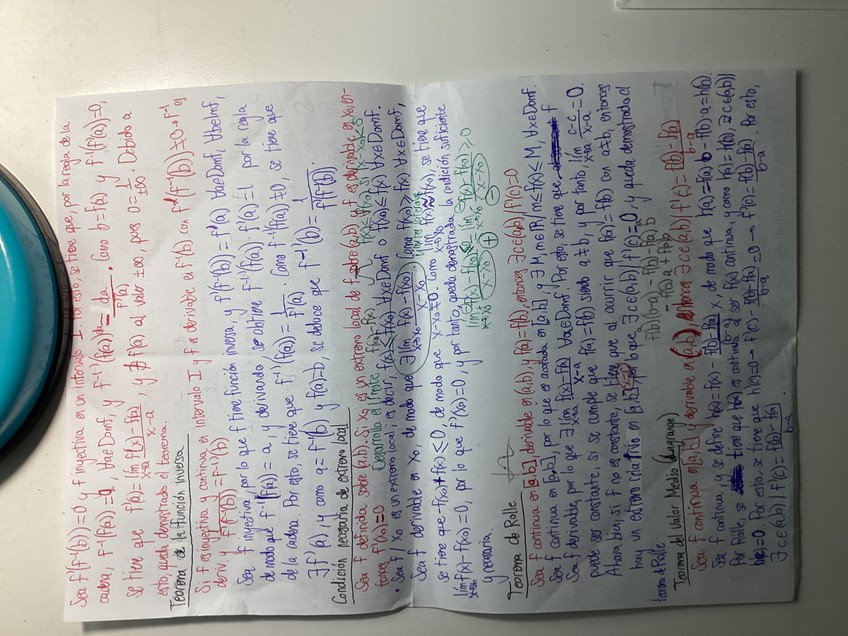 Sea f'(f⁻¹(b))=0 y f inyectiva en un intervalo I. Por esto, se tiene que, por la regla de la
cadena, f⁻¹(f(a))=a, ∀a∈Domf, y f⁻¹'(f(a)) = 1/f'(a). Como b=f(a) y f'(f⁻¹(a))=0,
se tiene que f'(a)= lim x→a f(x)-f(a)/x-a, y ∄ f'(a) al valor ±∞, pues 0=1/±∞. Debido a
esto, queda demostrado el teorema.
Teorema de la función inversa
Si f es inyectiva y continua en intervalo I y f es derivable en f⁻¹(b) con f'(f⁻¹(b))≠0→f⁻¹ es
deriv, y 1/f'(f⁻¹(b)) = f⁻¹'(b)
Sea f inyectiva, por lo que f tiene función inversa, y f(f⁻¹(b)) = f(a), ∀a∈Domf, ∀b∈Imf,
de modo que f⁻¹(f(a)) = a, y derivando se obtiene f⁻¹'(f(a))·f'(a)=1 por la regla
de la cadena. Por esto, se tiene que f⁻¹'(f(a)) = 1/f'(a). Como f⁻¹'(f(a))≠0, se tiene que
∃f'(a), y como a=f⁻¹(b) y f(a)=b, se deduce que f⁻¹'(b) = 1/f'(f⁻¹(b)).
Condición necesaria de extremo local
Sea f definida sobre (a,b). Si x₀ es un extremo local de f sobre (a,b) y f es derivable en x₀, en-
tonces f'(x₀)=0
Desarrolla el límite
• Sea f/x₀ es un extremo local, es decir, f(x)≤f(x₀) ∀x∈Domf o f(x₀)≤f(x) ∀x∈Domf.
Sea f derivable en x₀, de modo que ∃ lim x→x₀ f(x)-f(x₀)/x-x₀. Como f(x₀)≥f(x) ∀x∈Domf,
se tiene que -f(x₀)+f(x)≤0, de modo que x-x₀≠0. Como lim x→x₀ f(x)≈f(x₀), se tiene que
lim x→x₀ f(x)-f(x₀)=0, por lo que f'(x₀)=0, y por tanto, queda demostrada la condición suficiente
y necesaria.
Teorema de Rolle
Sea f continua en [a,b], derivable en (a,b), y f(a)=f(b), entonces ∃c∈(a,b)/f'(c)=0
Sea f continua en [a,b], por lo que es acotada en [a,b] y ∃ M,m∈ℝ/m≤f(x)≤M, ∀x∈Domf.
Sea f derivable, por lo que ∃ lim x→a f(x)-f(a)/x-a ∀a∈Domf. Por esto, se tiene que f
puede ser constante, si se cumple que f(a)=f(b) siendo a≠b, y por tanto, lim x→a c-c/x-a=0.
Ahora bien, si f no es constante, se tiene que al ocurrir que f(a)=f(b) con a≠b, entonces
hay un extremo en [a,b], por lo que ∃c∈(a,b)/f'(c)=0, y queda demostrado el
teorema de Rolle.
Teorema del Valor Medio (Lagrange)
Sea f continua en [a,b] y derivable en (a,b), entonces ∃c∈(a,b)/f'(c)=f(b)-f(a)/b-a
Sea f continua, y se define h(x)=f(x)-f(b)-f(a)/b-a x, de modo que h(a)=f(a)b-f(b)a=h(b).
Por Rolle, se tiene que h(x) es continua al ser f(x) continua, y como f(a)=f(b), ∃c∈(a,b)/
h'(c)=0. Por esto, se tiene que h'(c)=0→f'(c)-f(b)-f(a)/b-a=0→f'(c)=f(b)-f(a)/b-a. Por esto,
∃c∈(a,b)/f'(c)=f(b)-f(a)/b-a